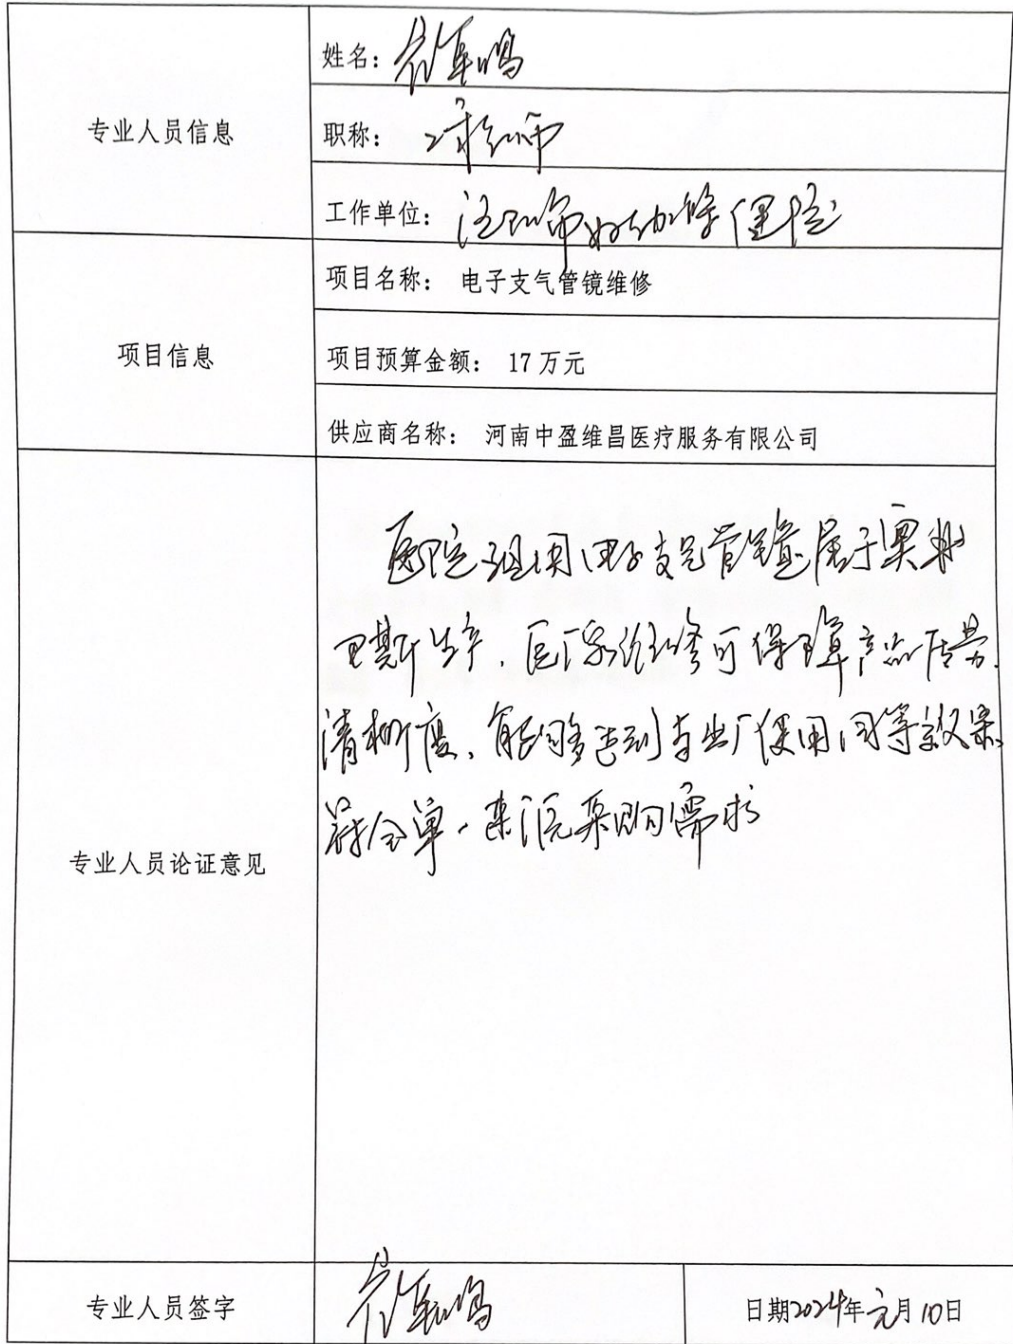 专业人员信息
姓名:
职称: 工程师
工作单位: 市妇幼保健院
项目信息
项目名称: 电子支气管镜维修
项目预算金额: 17万元
供应商名称: 河南中盈维昌医疗服务有限公司
专业人员论证意见
医院现用电子支气管镜属于奥林
巴斯生产, 原厂家维修可保障产品质量、
清晰度, 能够达到与出厂使用同等效果
符合单一来源采购需求
专业人员签字
日期2024年元月10日